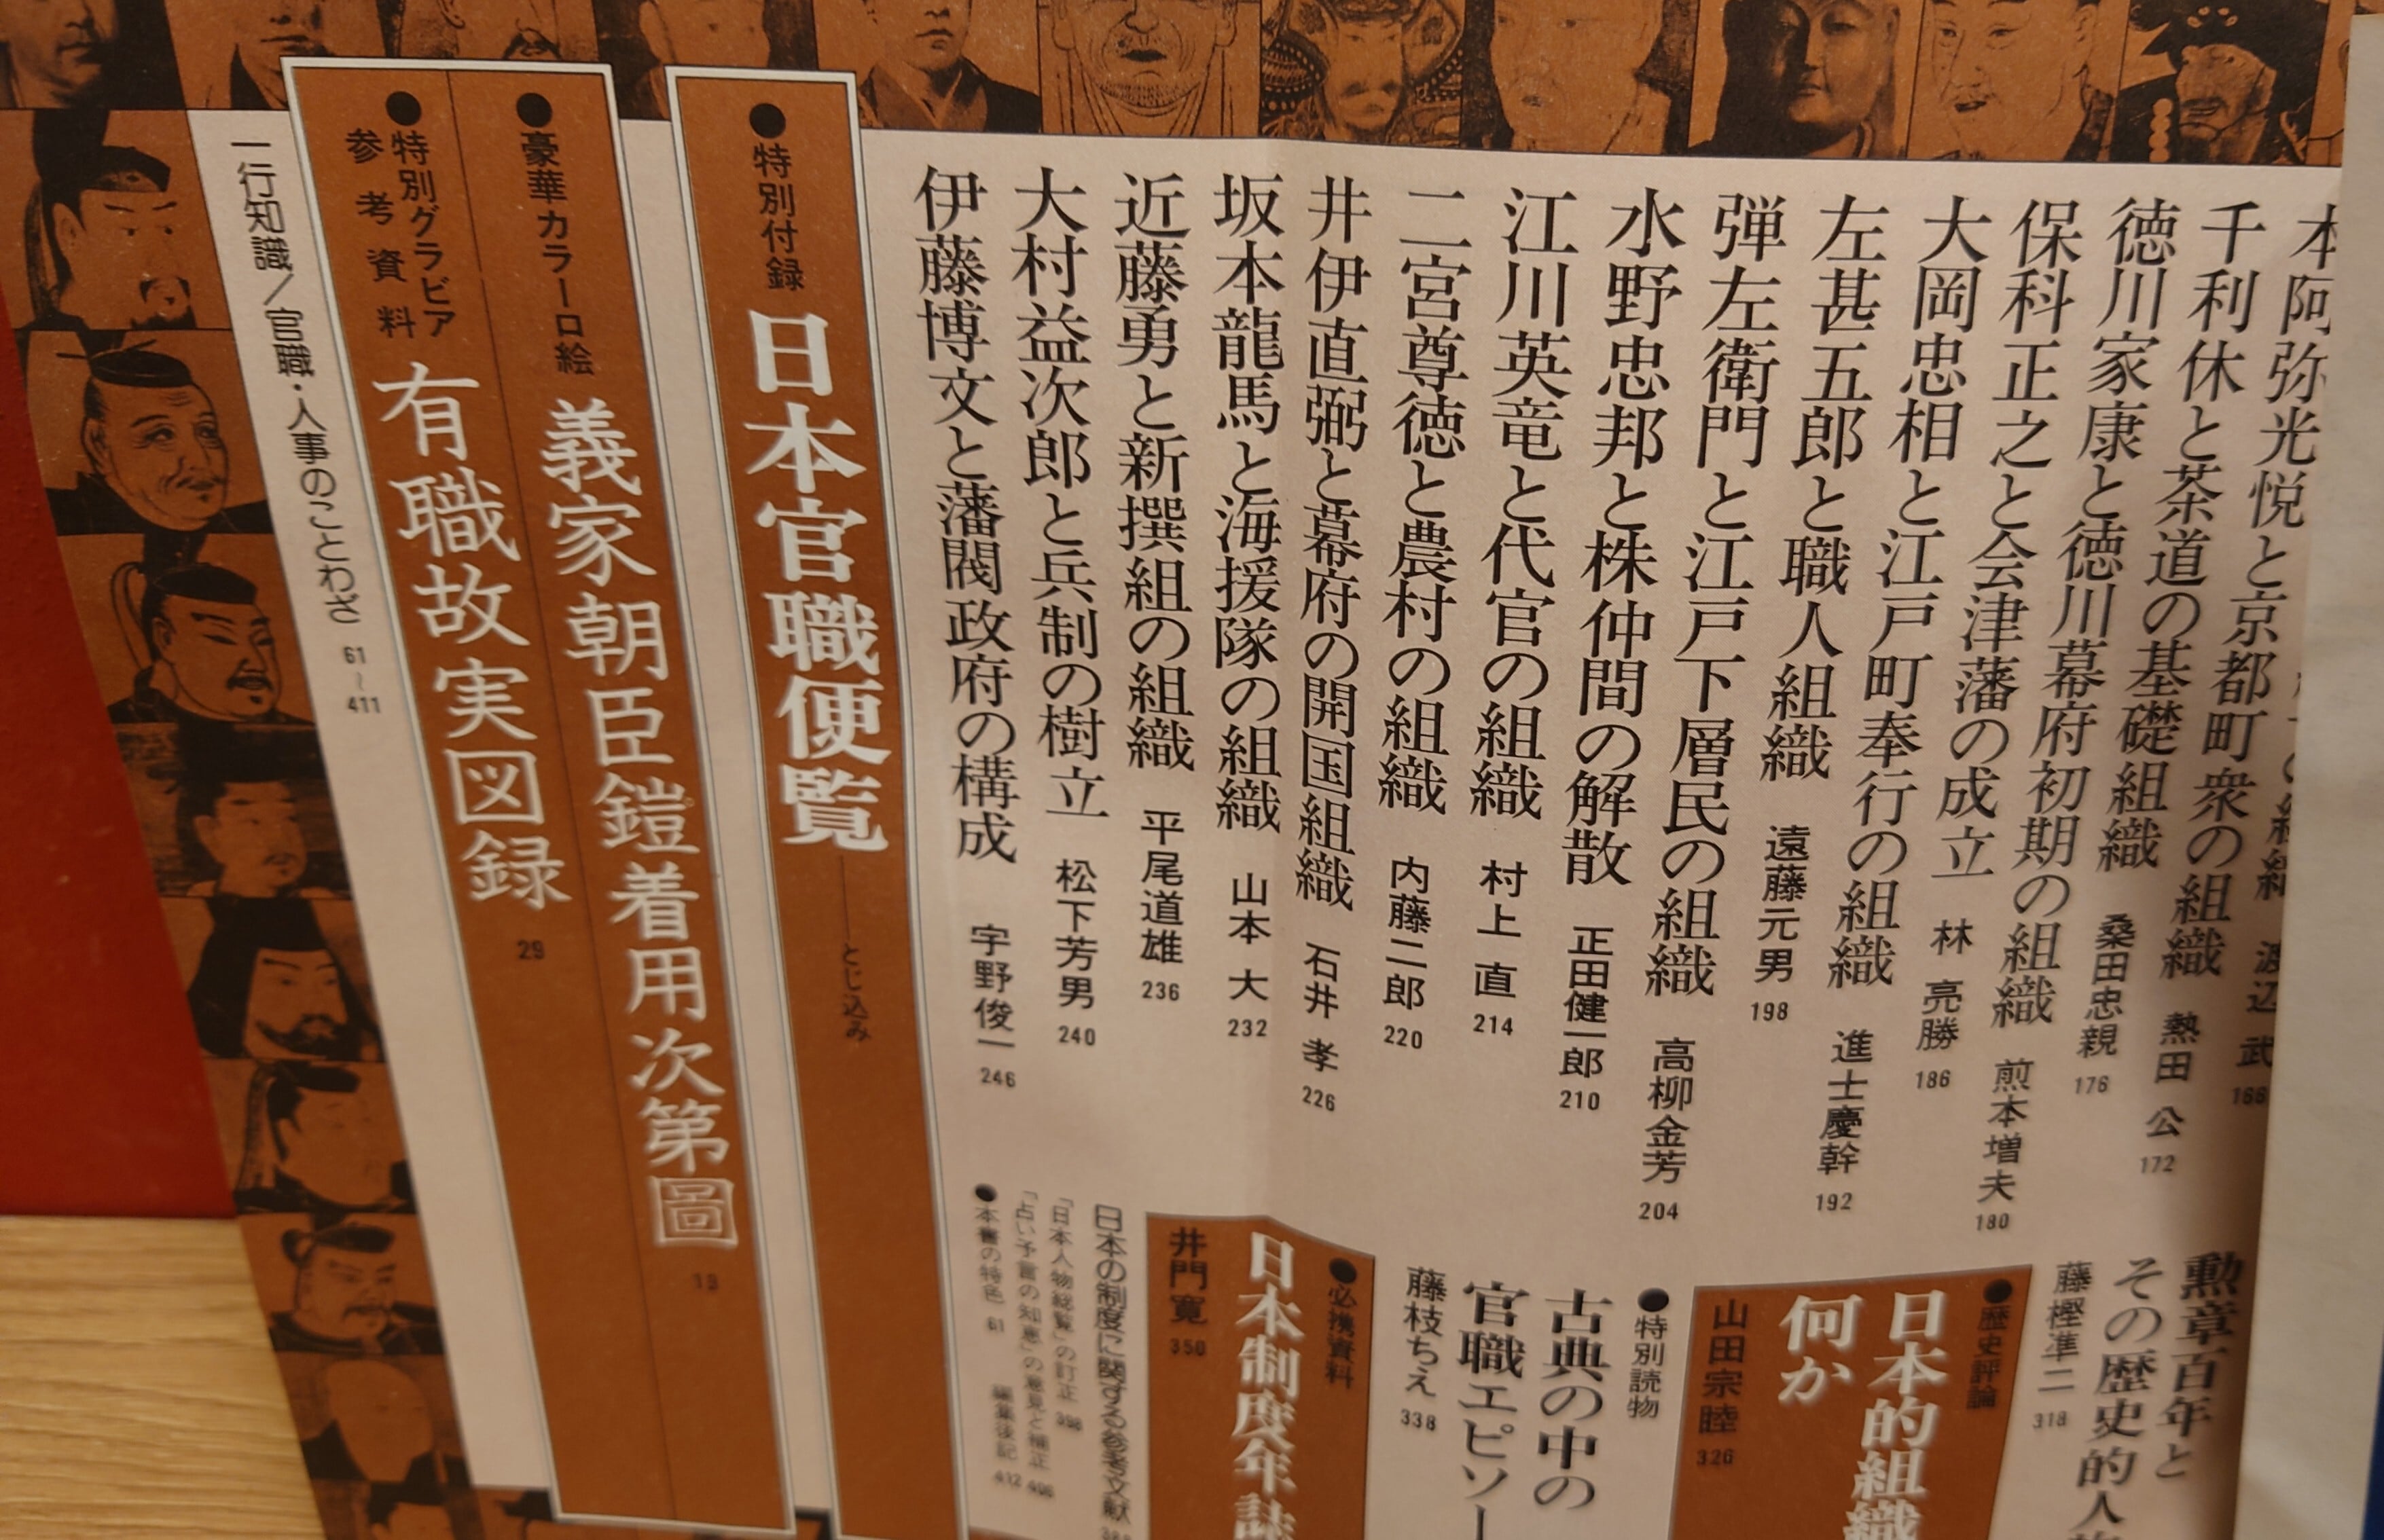 本阿弥光悦と京都町衆の組織 熱田 公 172
千利休と茶道の基礎組織
徳川家康と徳川幕府初期の組織
桑田忠親 176
保科正之と会津藩の成立
煎本増夫 180
林 亮勝 186
大岡忠相と江戸町奉行の組織 進士慶幹 192
左甚五郎と職人組織 遠藤元男 198
弾左衛門と江戸下層民の組織 高柳金芳 204
水野忠邦と株仲間の解散 正田健一郎 210
江川英竜と代官の組織 村上 直 214
二宮尊徳と農村の組織 内藤二郎 220
井伊直弼と幕府の開国組織 石井 孝 226
坂本龍馬と海援隊の組織 山本 大 232
近藤勇と新撰組の組織 平尾道雄 236
大村益次郎と兵制の樹立 松下芳男 240
伊藤博文と藩閥政府の構成 宇野俊一 246
勲章百年と
その歴史的
藤樫準二 318
●歴史評論
日本的組織
何か
山田宗睦 326
●特別読物
古典の中の
官職エピソー
藤枝ちえ 338
●必携資料
日本制度年誌
井門寛 350
日本の制度に関する参考文献
「日本人物総覧」の訂正 398
「占い予言の知恵」の意見と補正 406
●本書の特色 61 編集後記 412
●特別付録 日本官職便覧――とじ込み
●豪華カラー口絵 義家朝臣鎧着用次第圖 13
●特別グラビア
参考資料 有職故実図録 29
一行知識／官職・人事のことわざ 61~411